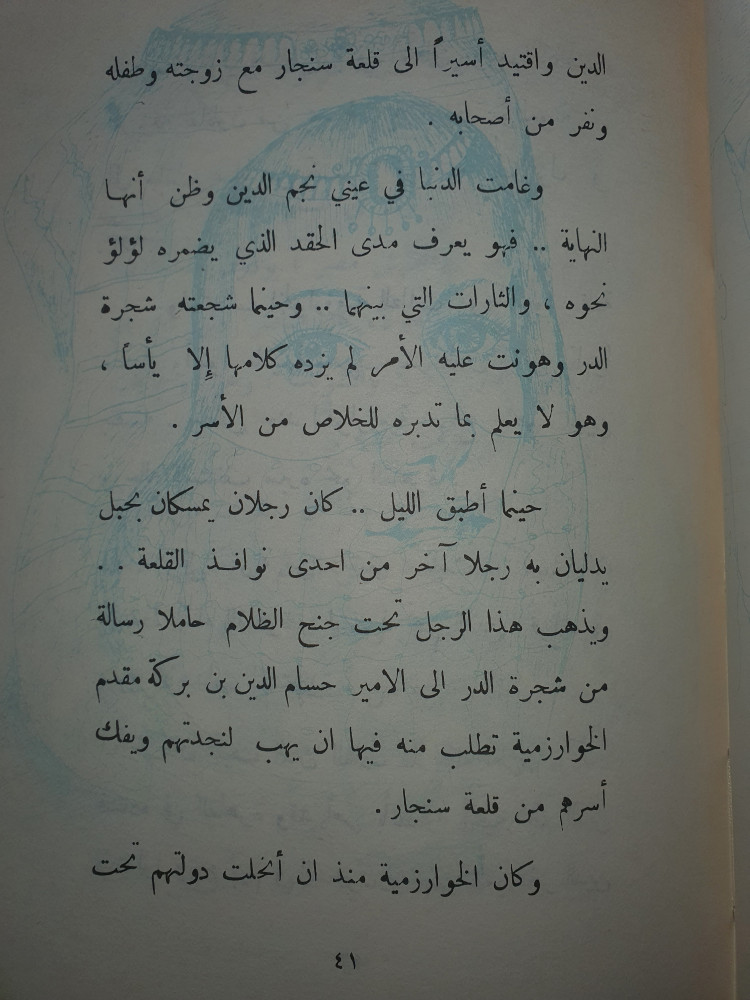 الدين واقتيد أسيراً الى قلعة سنجار مع زوجته وطفله
ونفر من أصحابه .
وغامت الدنيا في عيني نجم الدين وظن أنها
النهاية .. فهو يعرف مدى الحقد الذي يضمره لؤلؤ
نحوه ، والثارات التي بينهما .. وحينما شجعته شجرة
الدر وهونت عليه الأمر لم يزده كلامها إلا يأساً ،
وهو لا يعلم بما تدبره للخلاص من الأسر .
حينما أطبق الليل .. كان رجلان يمسكان بحبل
يدليان به رجلا آخر من احدى نوافذ القلعة ..
ويذهب هذا الرجل تحت جنح الظلام حاملا رسالة
من شجرة الدر الى الامير حسام الدين بن بركة مقدم
الخوارزمية تطلب منه فيها ان يهب لنجدتهم ويفك
أسرهم من قلعة سنجار .
وكان الخوارزمية منذ ان أنحلت دولتهم تحت
٤١